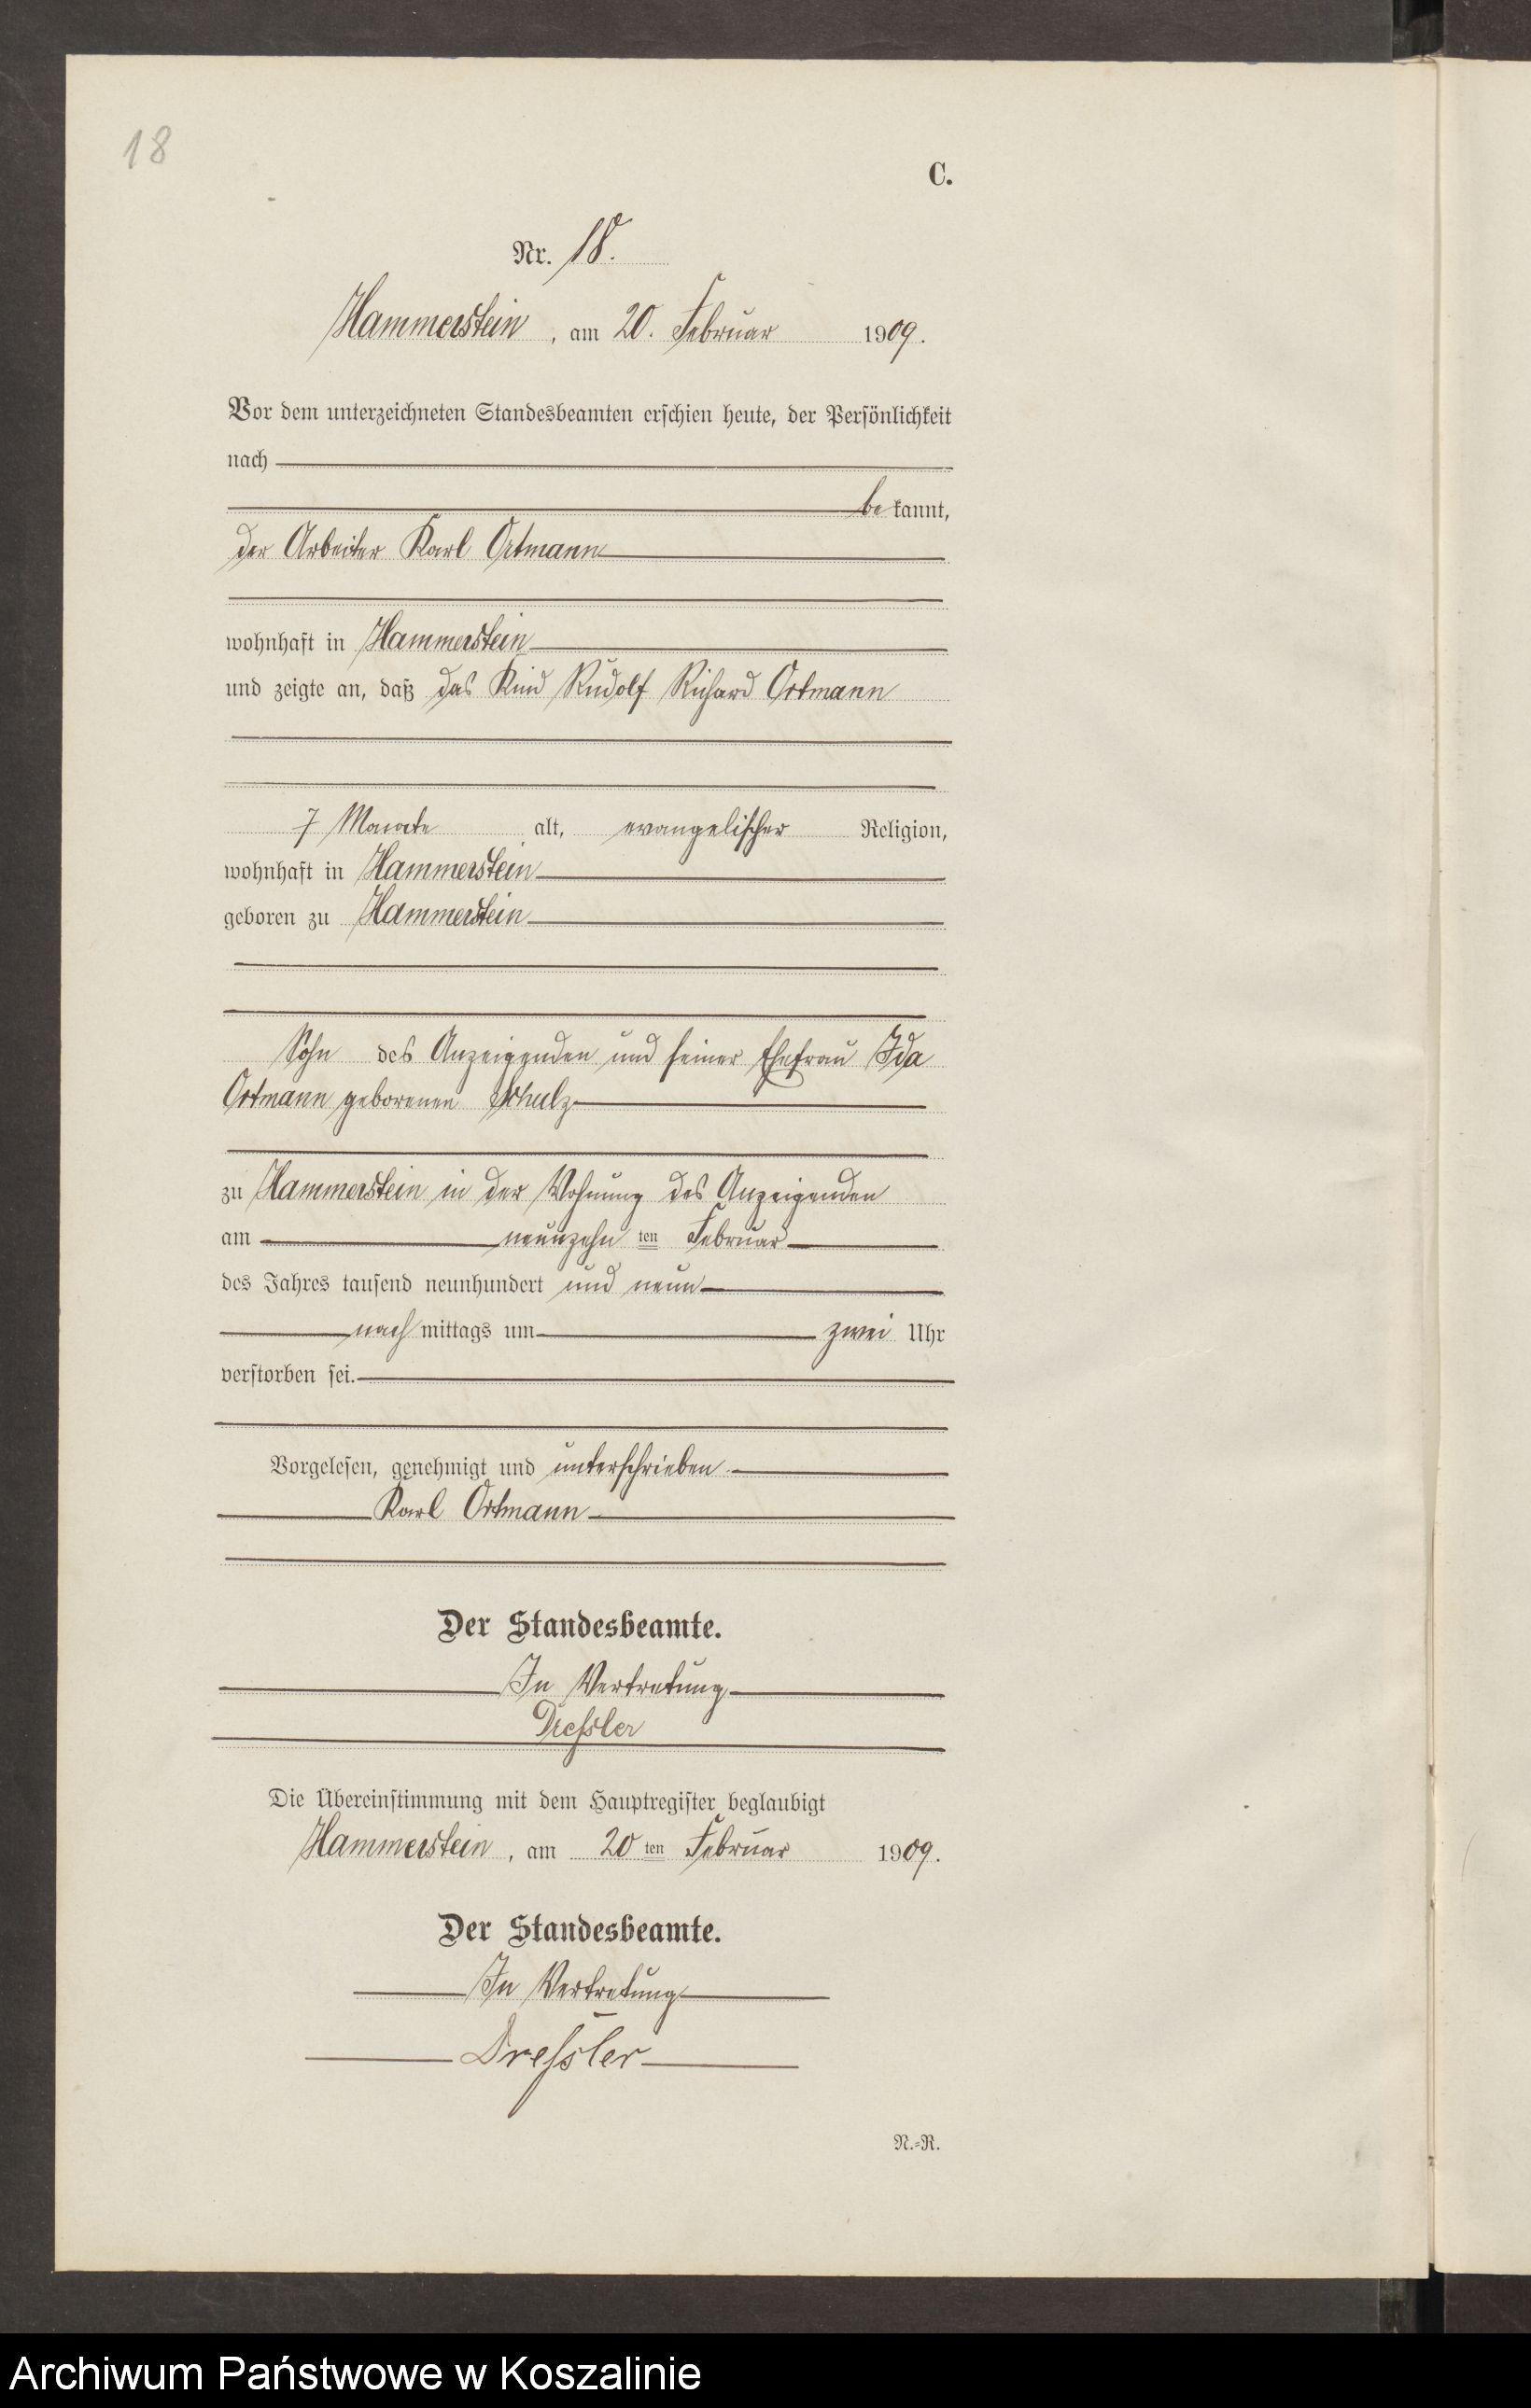 18
C.
Nr. 18.
Hammerstein, am 20. Februar 1909.
Vor dem unterzeichneten Standesbeamten erschien heute, der Persönlichkeit
nach
bekannt,
der Arbeiter Karl Ortmann
wohnhaft in Hammerstein
und zeigte an, daß das Kind Rudolf Richard Ortmann
7 Monate alt, evangelischer Religion,
wohnhaft in Hammerstein
geboren zu Hammerstein
Sohn des Anzeigenden und seiner Ehefrau Ida
Ortmann geborenen Schulz
zu Hammerstein in der Wohnung des Anzeigenden
am neunzehn ten Februar
des Jahres tausend neunhundert und neun
nach mittags um zwei Uhr
verstorben sei.
Vorgelesen, genehmigt und unterschrieben.
Karl Ortmann
Der Standesbeamte.
In Vertretung
Dressler
Die Übereinstimmung mit dem Hauptregister beglaubigt
Hammerstein, am 20 ten Februar 1909.
Der Standesbeamte.
In Vertretung
Dressler
N.-R.
Archiwum Państwowe w Koszalinie